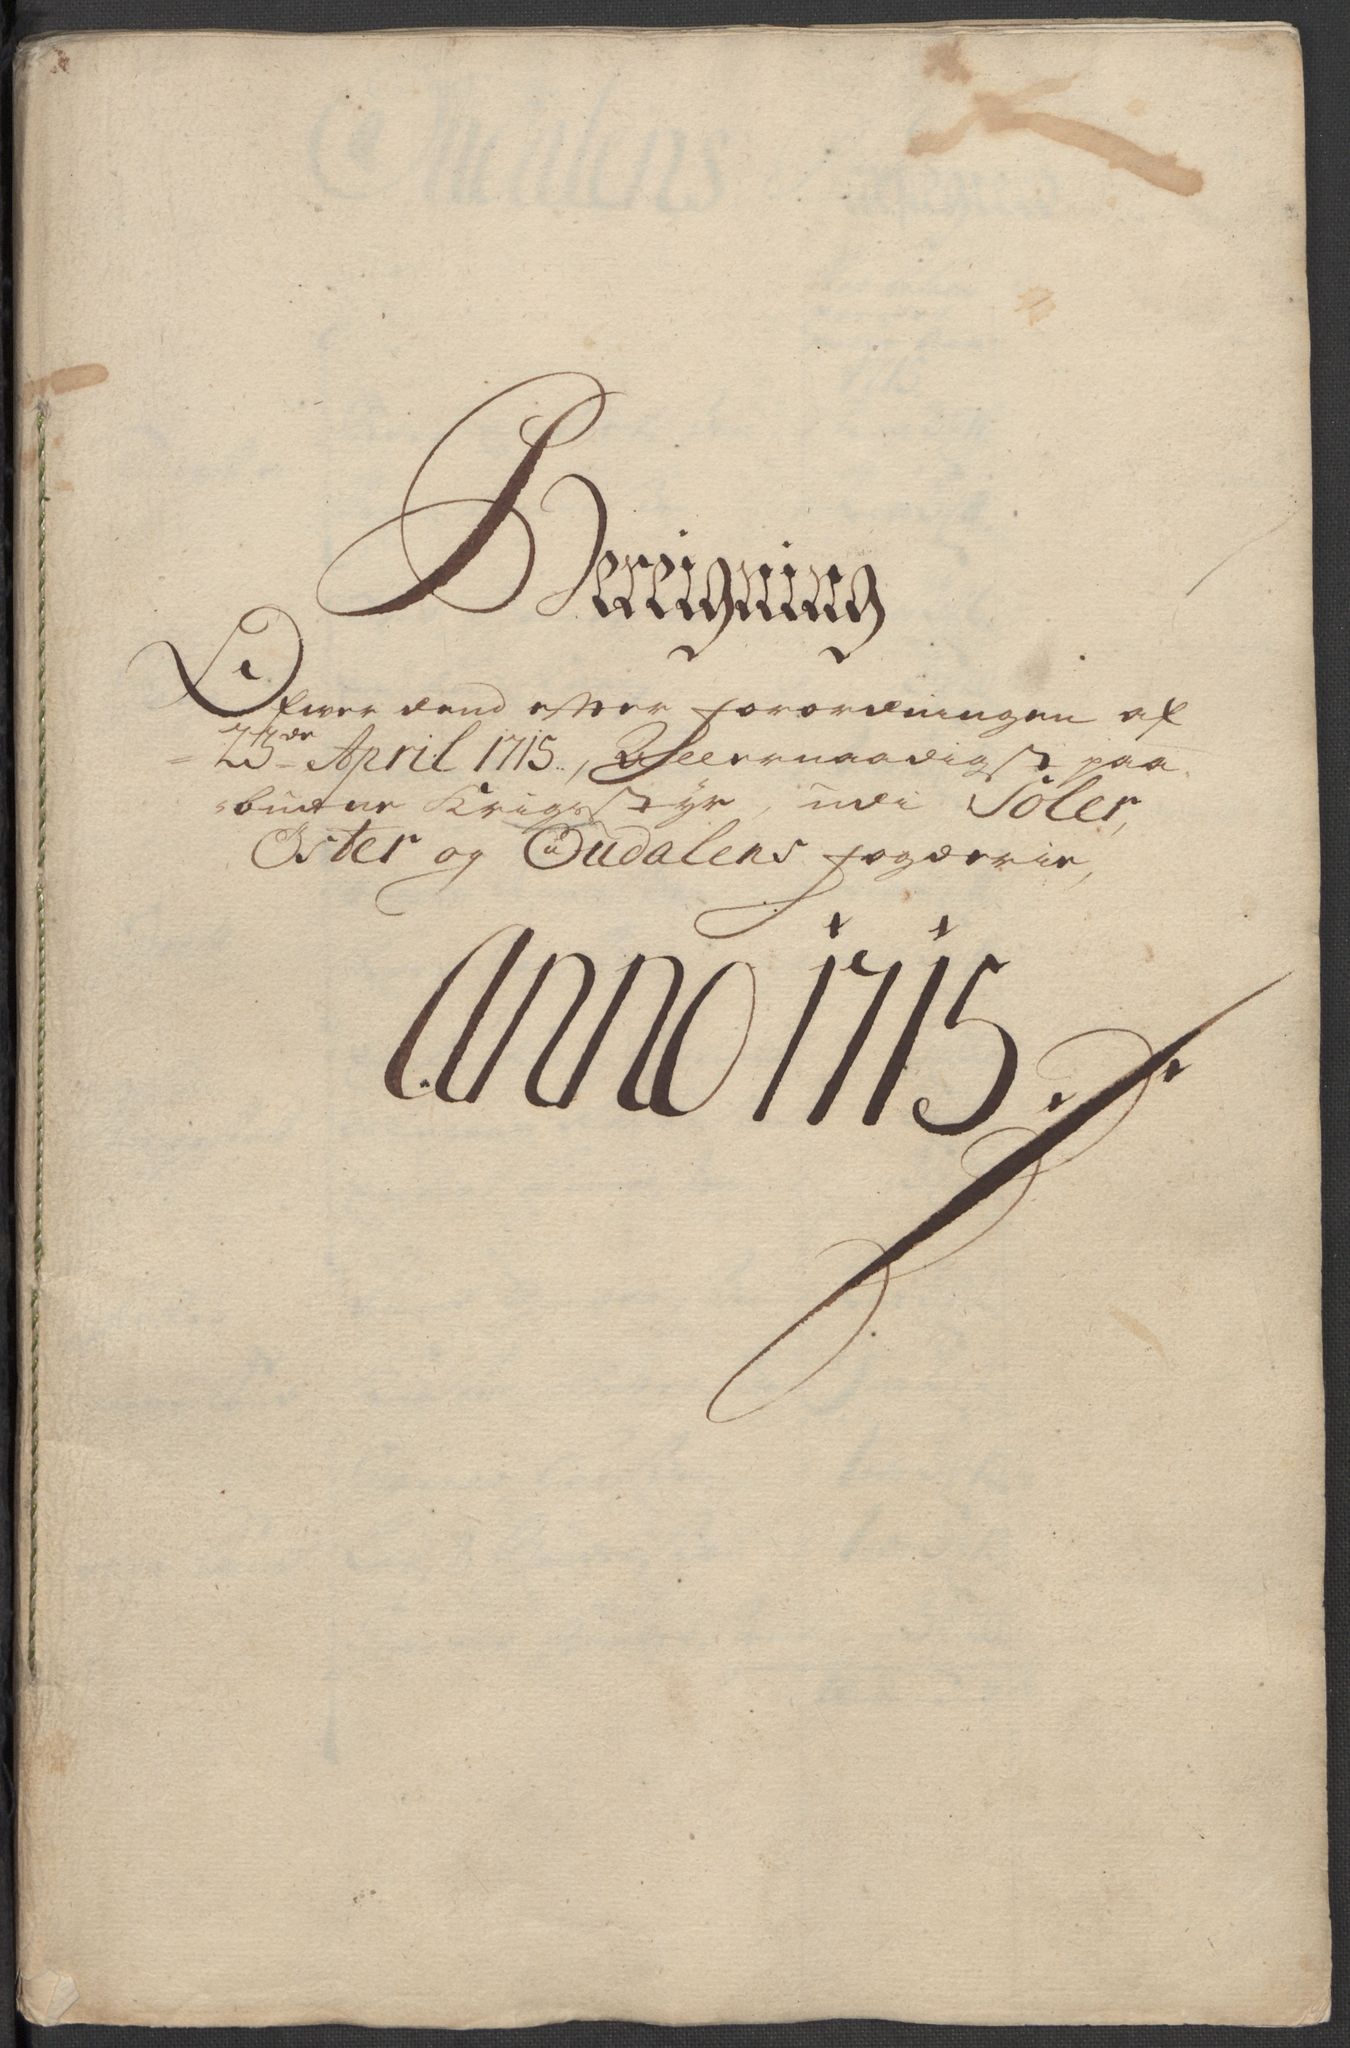 Bereigning
Ofwer dend effter forordningen af
23de April 1715, Allernaadigst paa¬
budne Krigsstyr, udi Soler,
Oster og Oudalens fogderie,
Anno 1715.